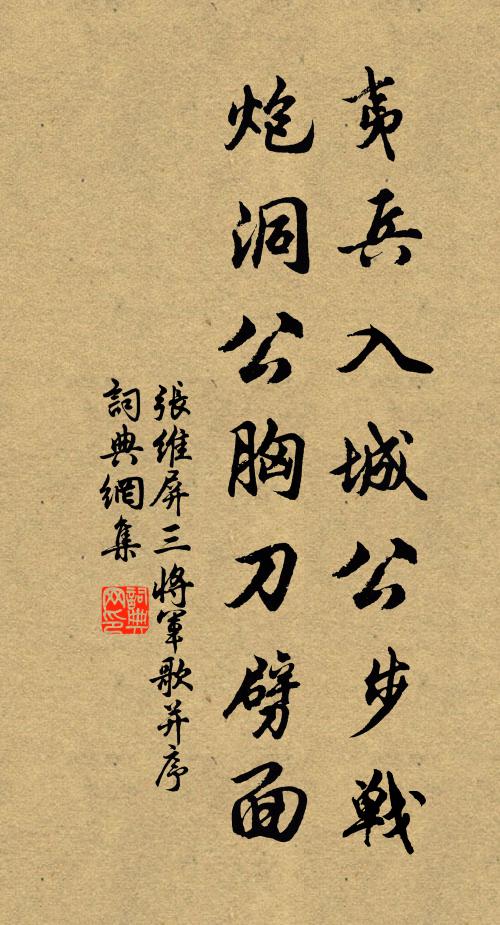 夷兵入城公步戰
炮洞公胸刀劈面
張維屏三將軍歌并序
詞典網集
詞典网印